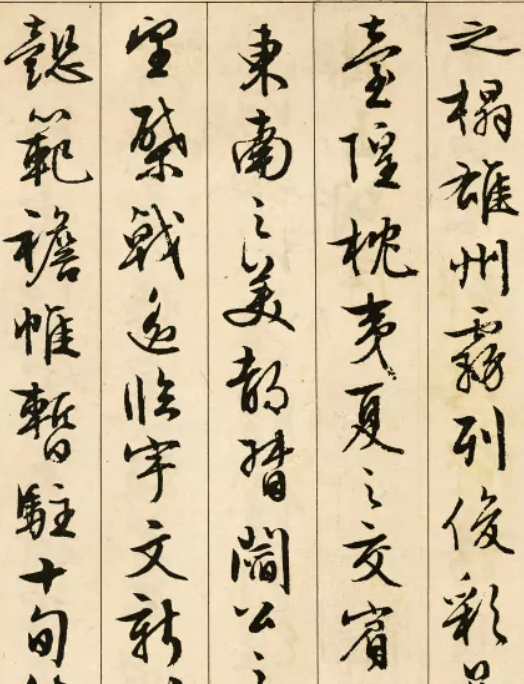 之榻雄州霧列俊彩
臺隍枕夷夏之交賓
東南之美都督閻公之
望棨戟遙臨宇文新
懿範襜帷暫駐十旬